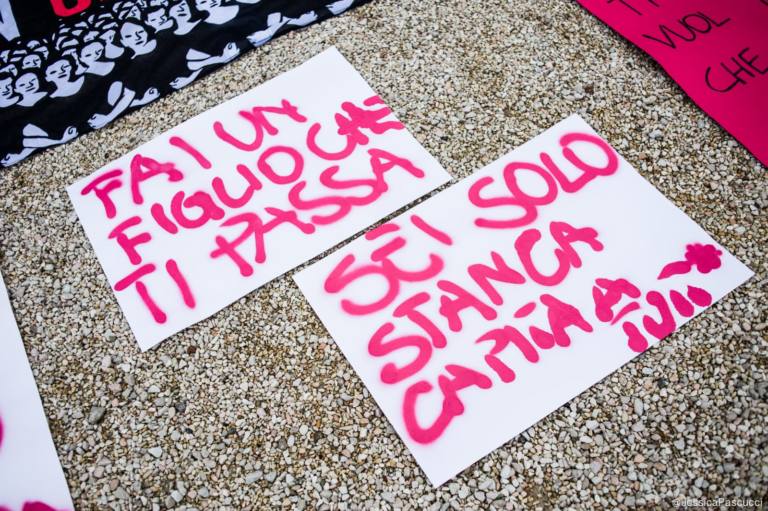 FAI UN
FIGLIO CHE
TI PASSA
SEI SOLO
STANCA
VUOL
CHE
@JessicaPascucci